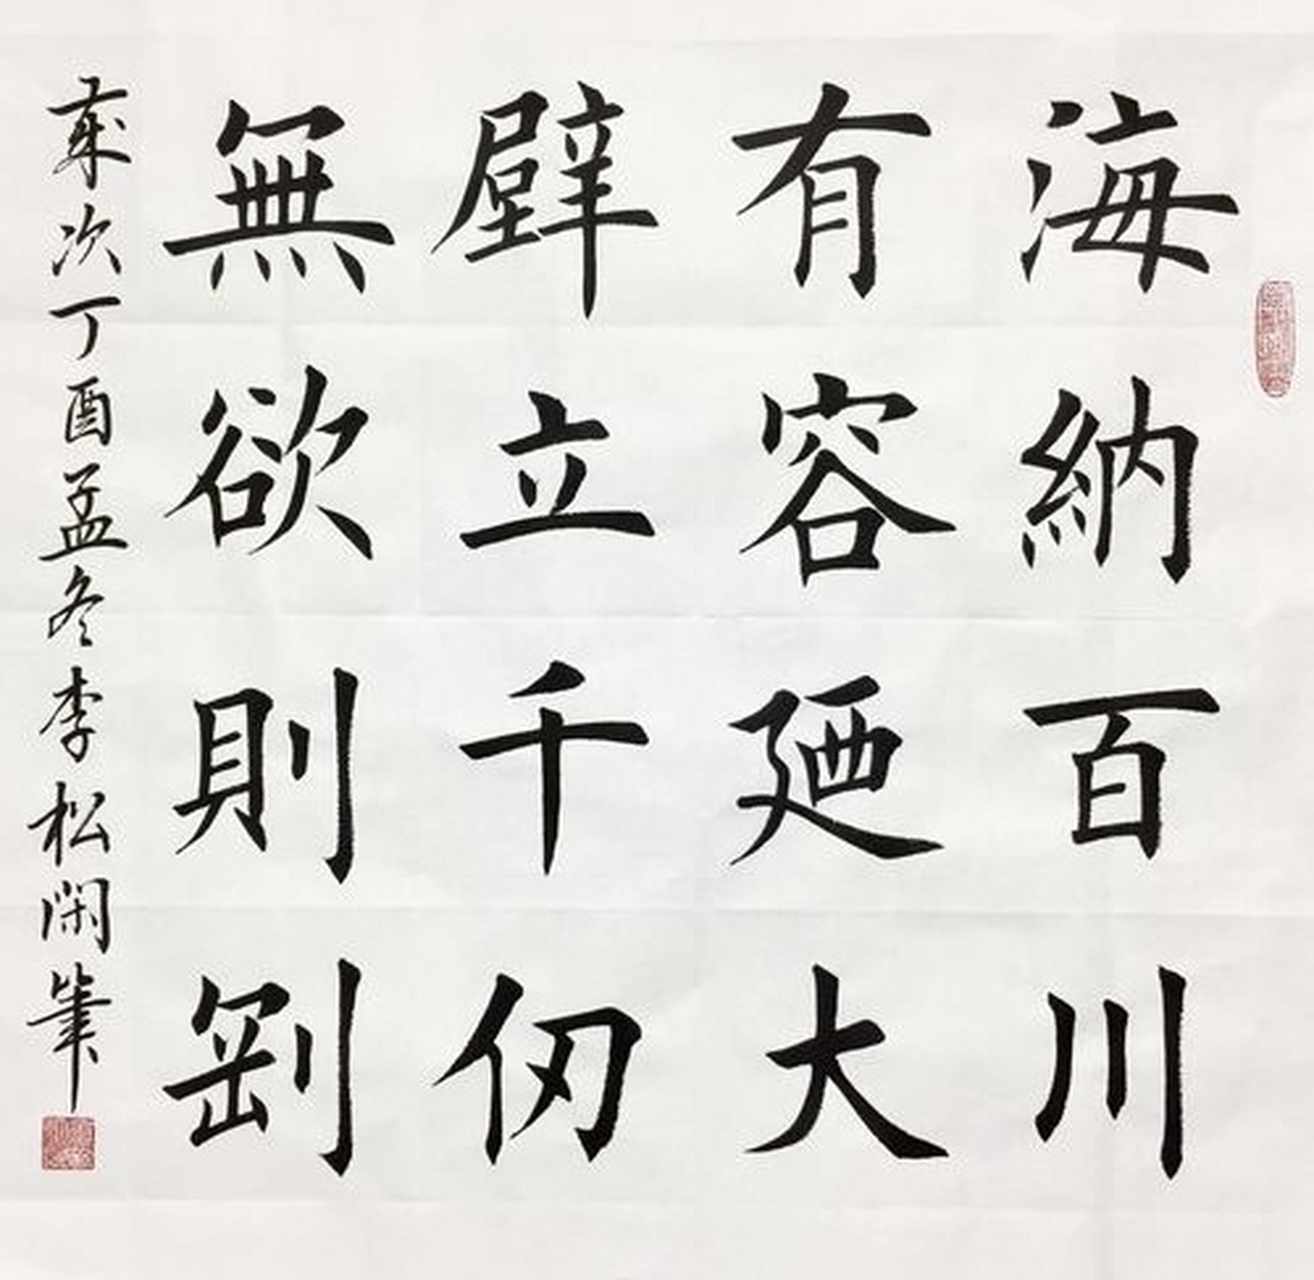 海納百川
有容廼大
壁立千仞
無欲則剛
歲次丁酉孟冬李松閑筆